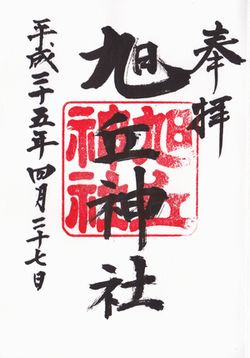 奉拝
旭丘神社
旭丘神社
平成二十五年四月二十七日